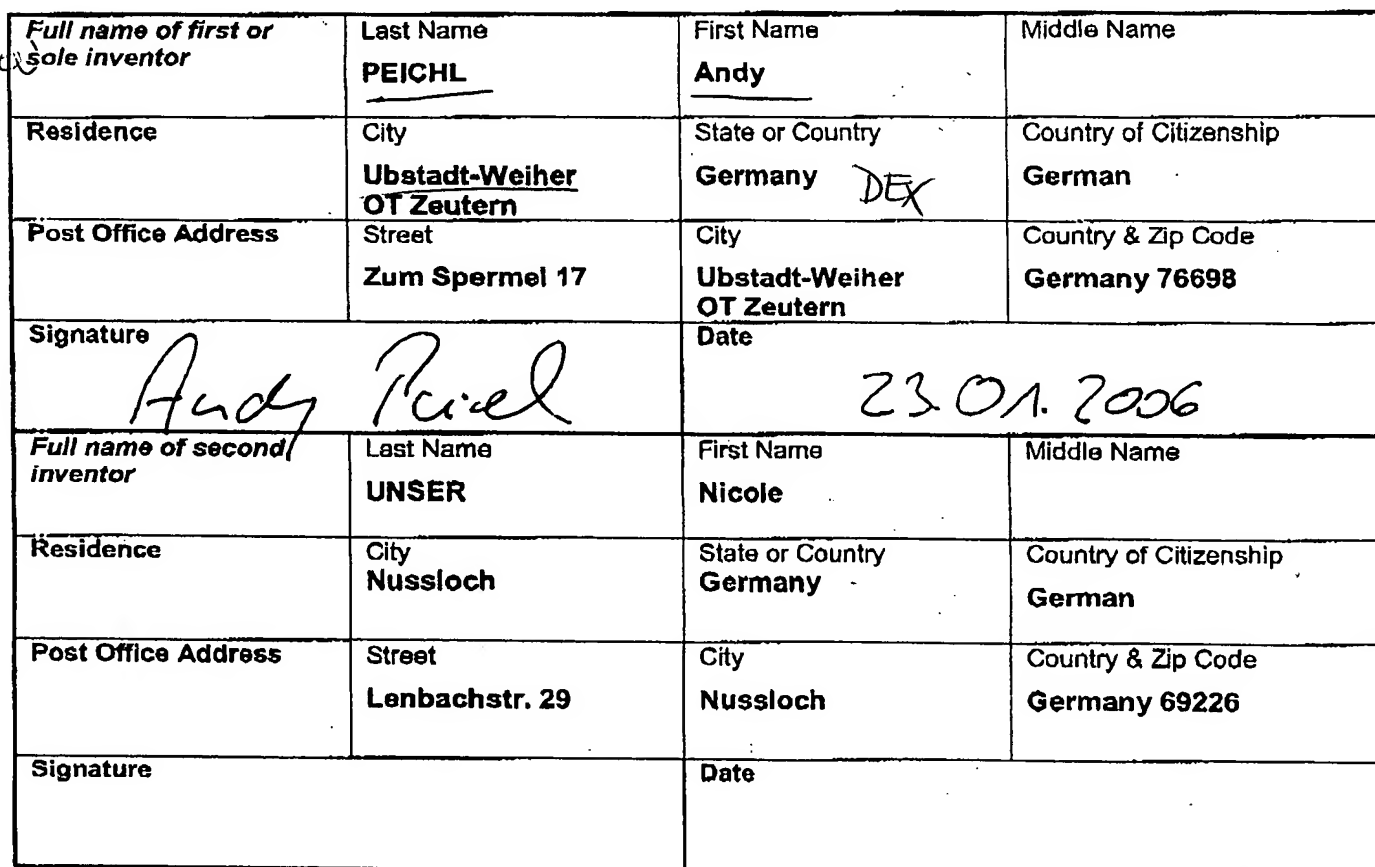 Full name of first or sole inventor
Last Name
PEICHL
First Name
Andy
Middle Name
Residence
City
Ubstadt-Weiher
OT Zeutern
State or Country
Germany DEX
Country of Citizenship
German
Post Office Address
Street
Zum Spermel 17
City
Ubstadt-Weiher
OT Zeutern
Country & Zip Code
Germany 76698
Signature
Andy
Date
23.01.2006
Full name of second inventor
Last Name
UNSER
First Name
Nicole
Middle Name
Residence
City
Nussloch
State or Country
Germany
Country of Citizenship
German
Post Office Address
Street
Lenbachstr. 29
City
Nussloch
Country & Zip Code
Germany 69226
Signature
Date